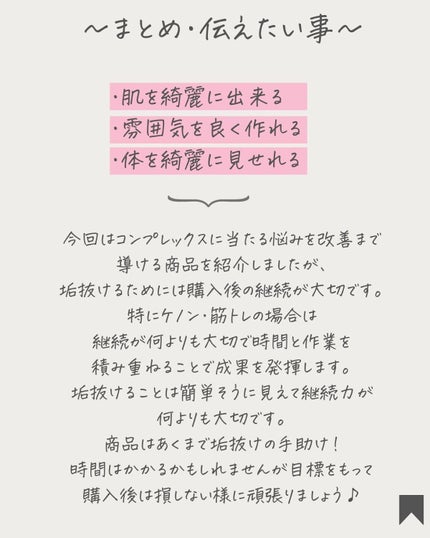 ～まとめ・伝えたい事～
・肌を綺麗に出来る
・雰囲気を良く作れる
・体を綺麗に見せれる
今回はコンプレックスに当たる悩みを改善まで
導ける商品を紹介しましたが、
垢抜けるためには購入後の継続が大切です。
特にケノン・筋トレの場合は
継続が何よりも大切で時間と作業を
積み重ねることで成果を発揮します。
垢抜けることは簡単そうに見えて継続力が
何よりも大切です。
商品はあくまで垢抜けの手助け！
時間はかかるかもしれませんが目標をもって
購入後は損しない様に頑張りましょう♪